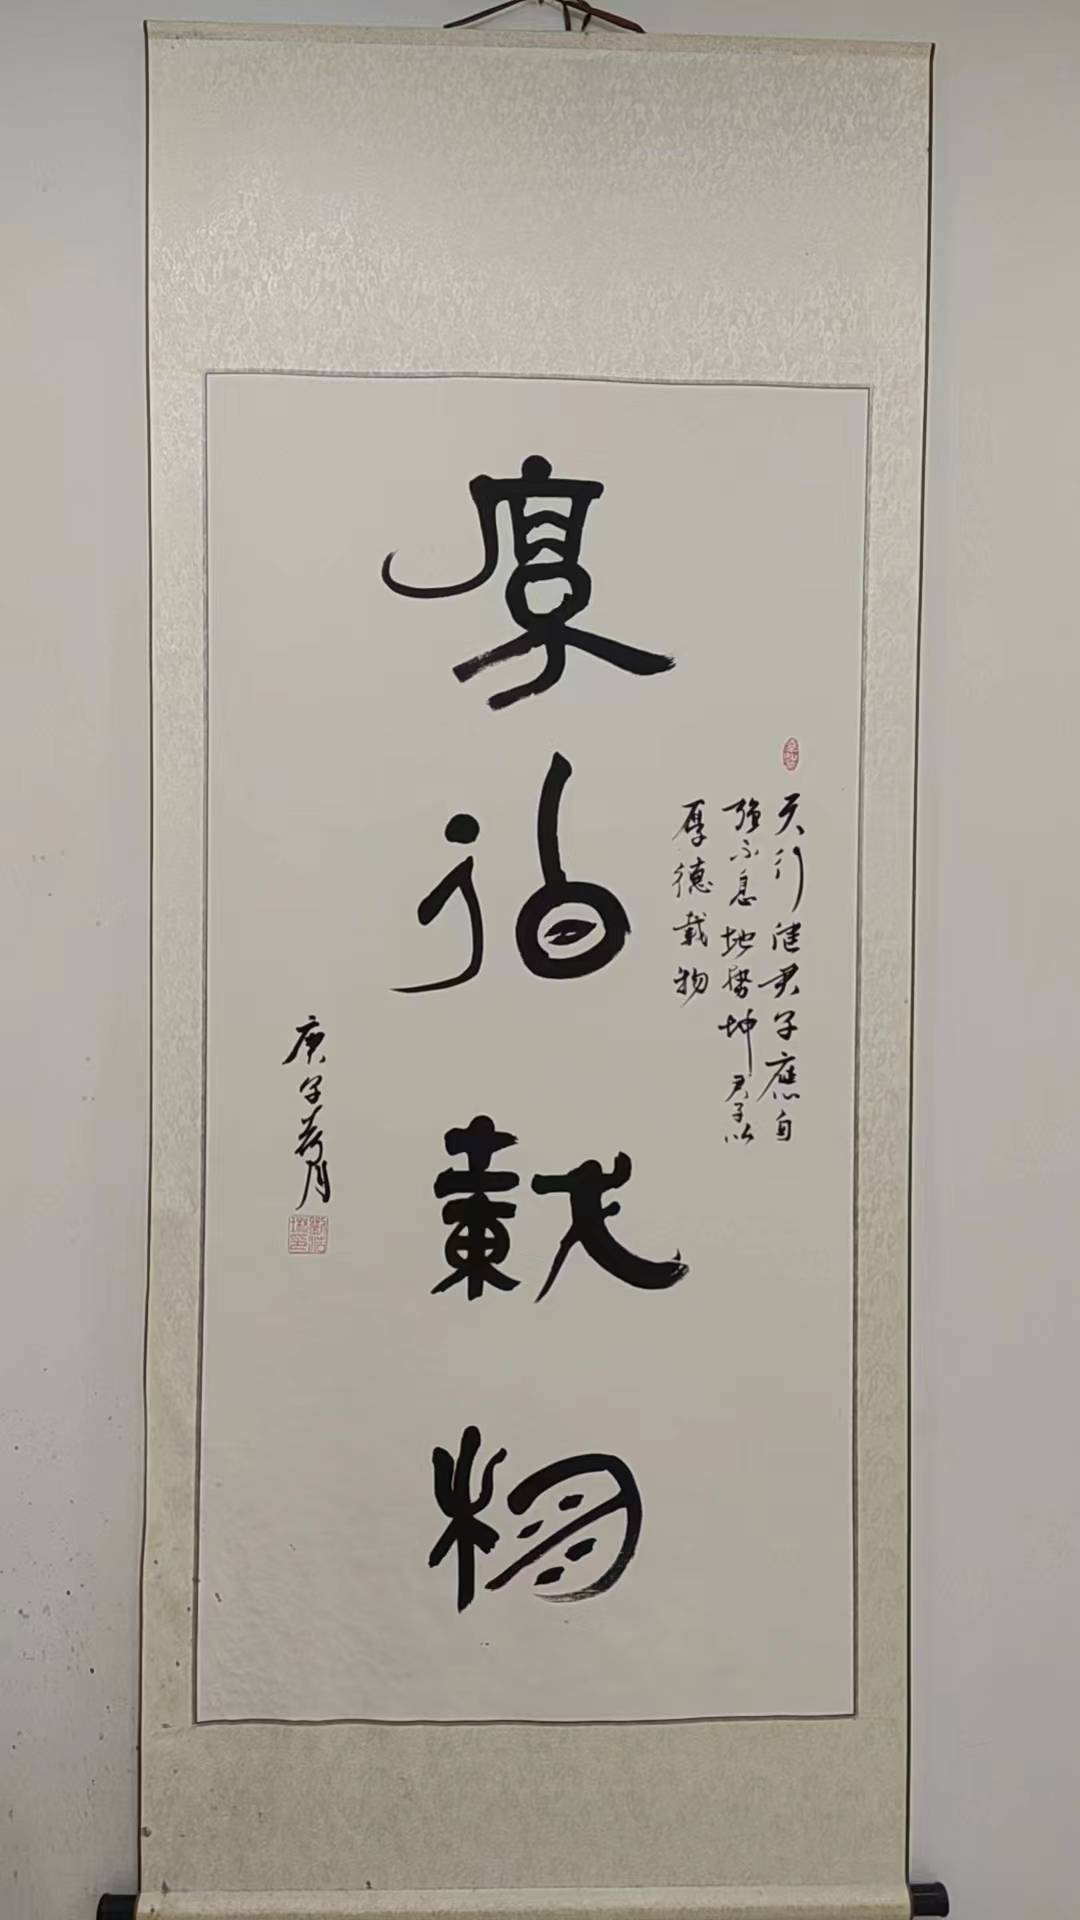 厚德載物
天行健君子應自
強不息地勢坤君子以
厚德載物
庚子春月